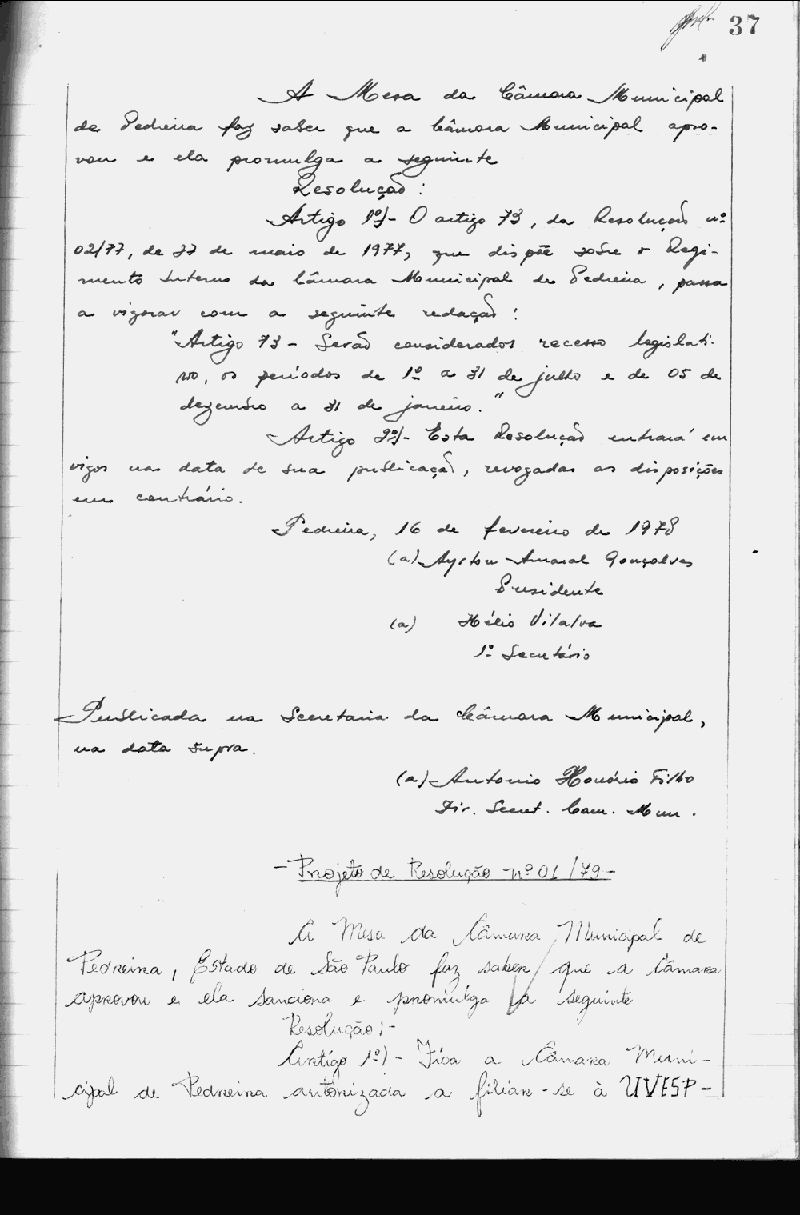 37
A Mesa da Câmara Municipal
de Pedreira faz saber que a Câmara Municipal apro-
vou e ela promulga a seguinte
Resolução:
Artigo 1º)- O artigo 73, da Resolução nº
02/77, de 27 de maio de 1977, que dispõe sobre o Regi-
mento Interno da Câmara Municipal de Pedreira, passa
a vigorar com a seguinte redação:
"Artigo 73 - Serão considerados recesso legislati-
vo, os períodos de 1º a 31 de julho e de 05 de
dezembro a 31 de janeiro."
Artigo 2º)- Esta Resolução entrará em
vigor na data de sua publicação, revogadas as disposições
em contrário.
Pedreira, 16 de fevereiro de 1978
(a) Ayrton Amaral Gonçalves
Presidente
(a) Hélio Vilalva
1º Secretário
Publicada na Secretaria da Câmara Municipal,
na data supra.
(a) Antonio Honório Filho
Dir. Secret. Cam. Mun.
- Projeto de Resolução - nº 01/79 -
A Mesa da Câmara Municipal de
Pedreira, Estado de São Paulo faz saber que a Câmara
aprovou e ela sanciona e promulga a seguinte
Resolução:-
Artigo 1º)- Fica a Câmara Muni-
cipal de Pedreira autorizada a filiar-se à UVESP-